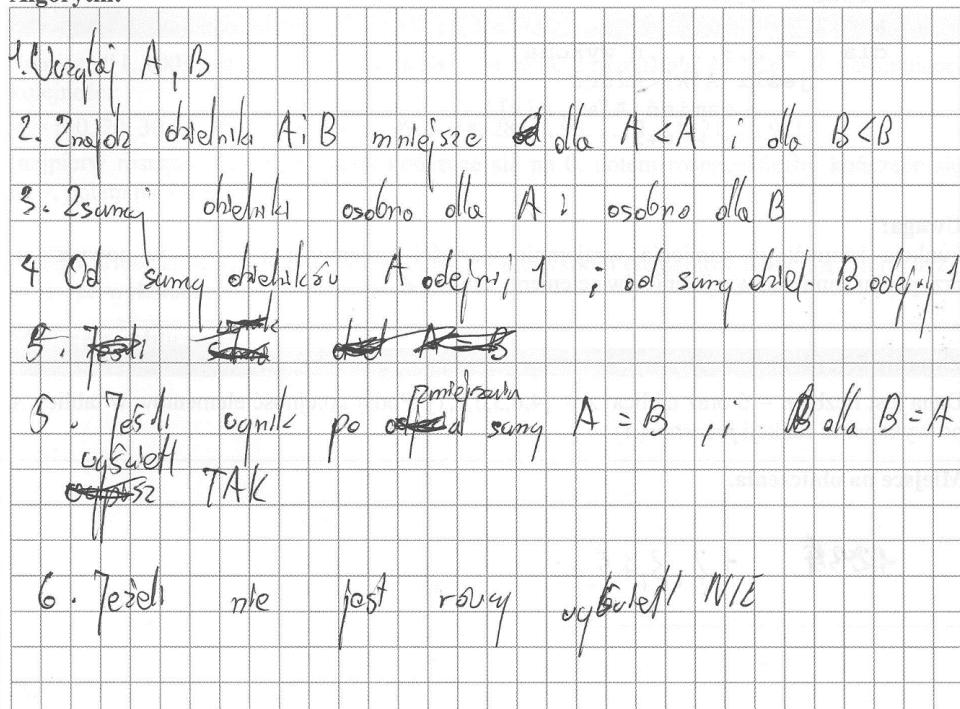 Algorytm:
1. Wczytaj A, B
2. Znajdz dzielniki A i B mniejsze dla A<A i dla B<B
3. Zsumuj dzielniki osobno dla A i osobno dla B
4 Od sumy dzielników A odejmij 1 i od sumy dziel. B odejmij 1
5. Jeśli A=B
zmiejszeniu
5. Jeśli wynik po sumy A = B , i B dla B = A
wyświetl
TAK
6. Jeżeli nie jest równy wyświetl NIE